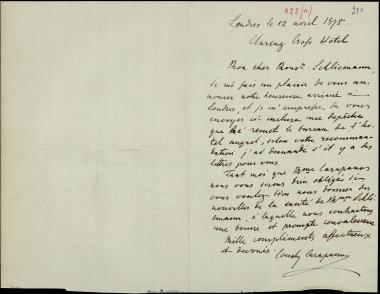 428(a)
Londres le 12 avril 1878.
Charing Cross Hotel
Mon cher Monsr. Schliemann,
Je me fais un plaisir de vous an-
noncer notre heureuse arrivée à
Londres, et je m'empresse de vous
envoyer ci-inclus une dépêche
que me remet le bureau de l'hô-
tel auquel, selon votre recomman-
dation j'ai demandé s'il y a des
lettres pour vous.
Tant moi que Mme Carapanos
nous vous serons bien obligés si
vous voulez bien nous donner des
nouvelles de la santé de Mme Schli-
emann, à laquelle nous souhaitons
une bonne et prompte convalescence.
Mille compliments affectueux
et dévoués
Const. Carapanos